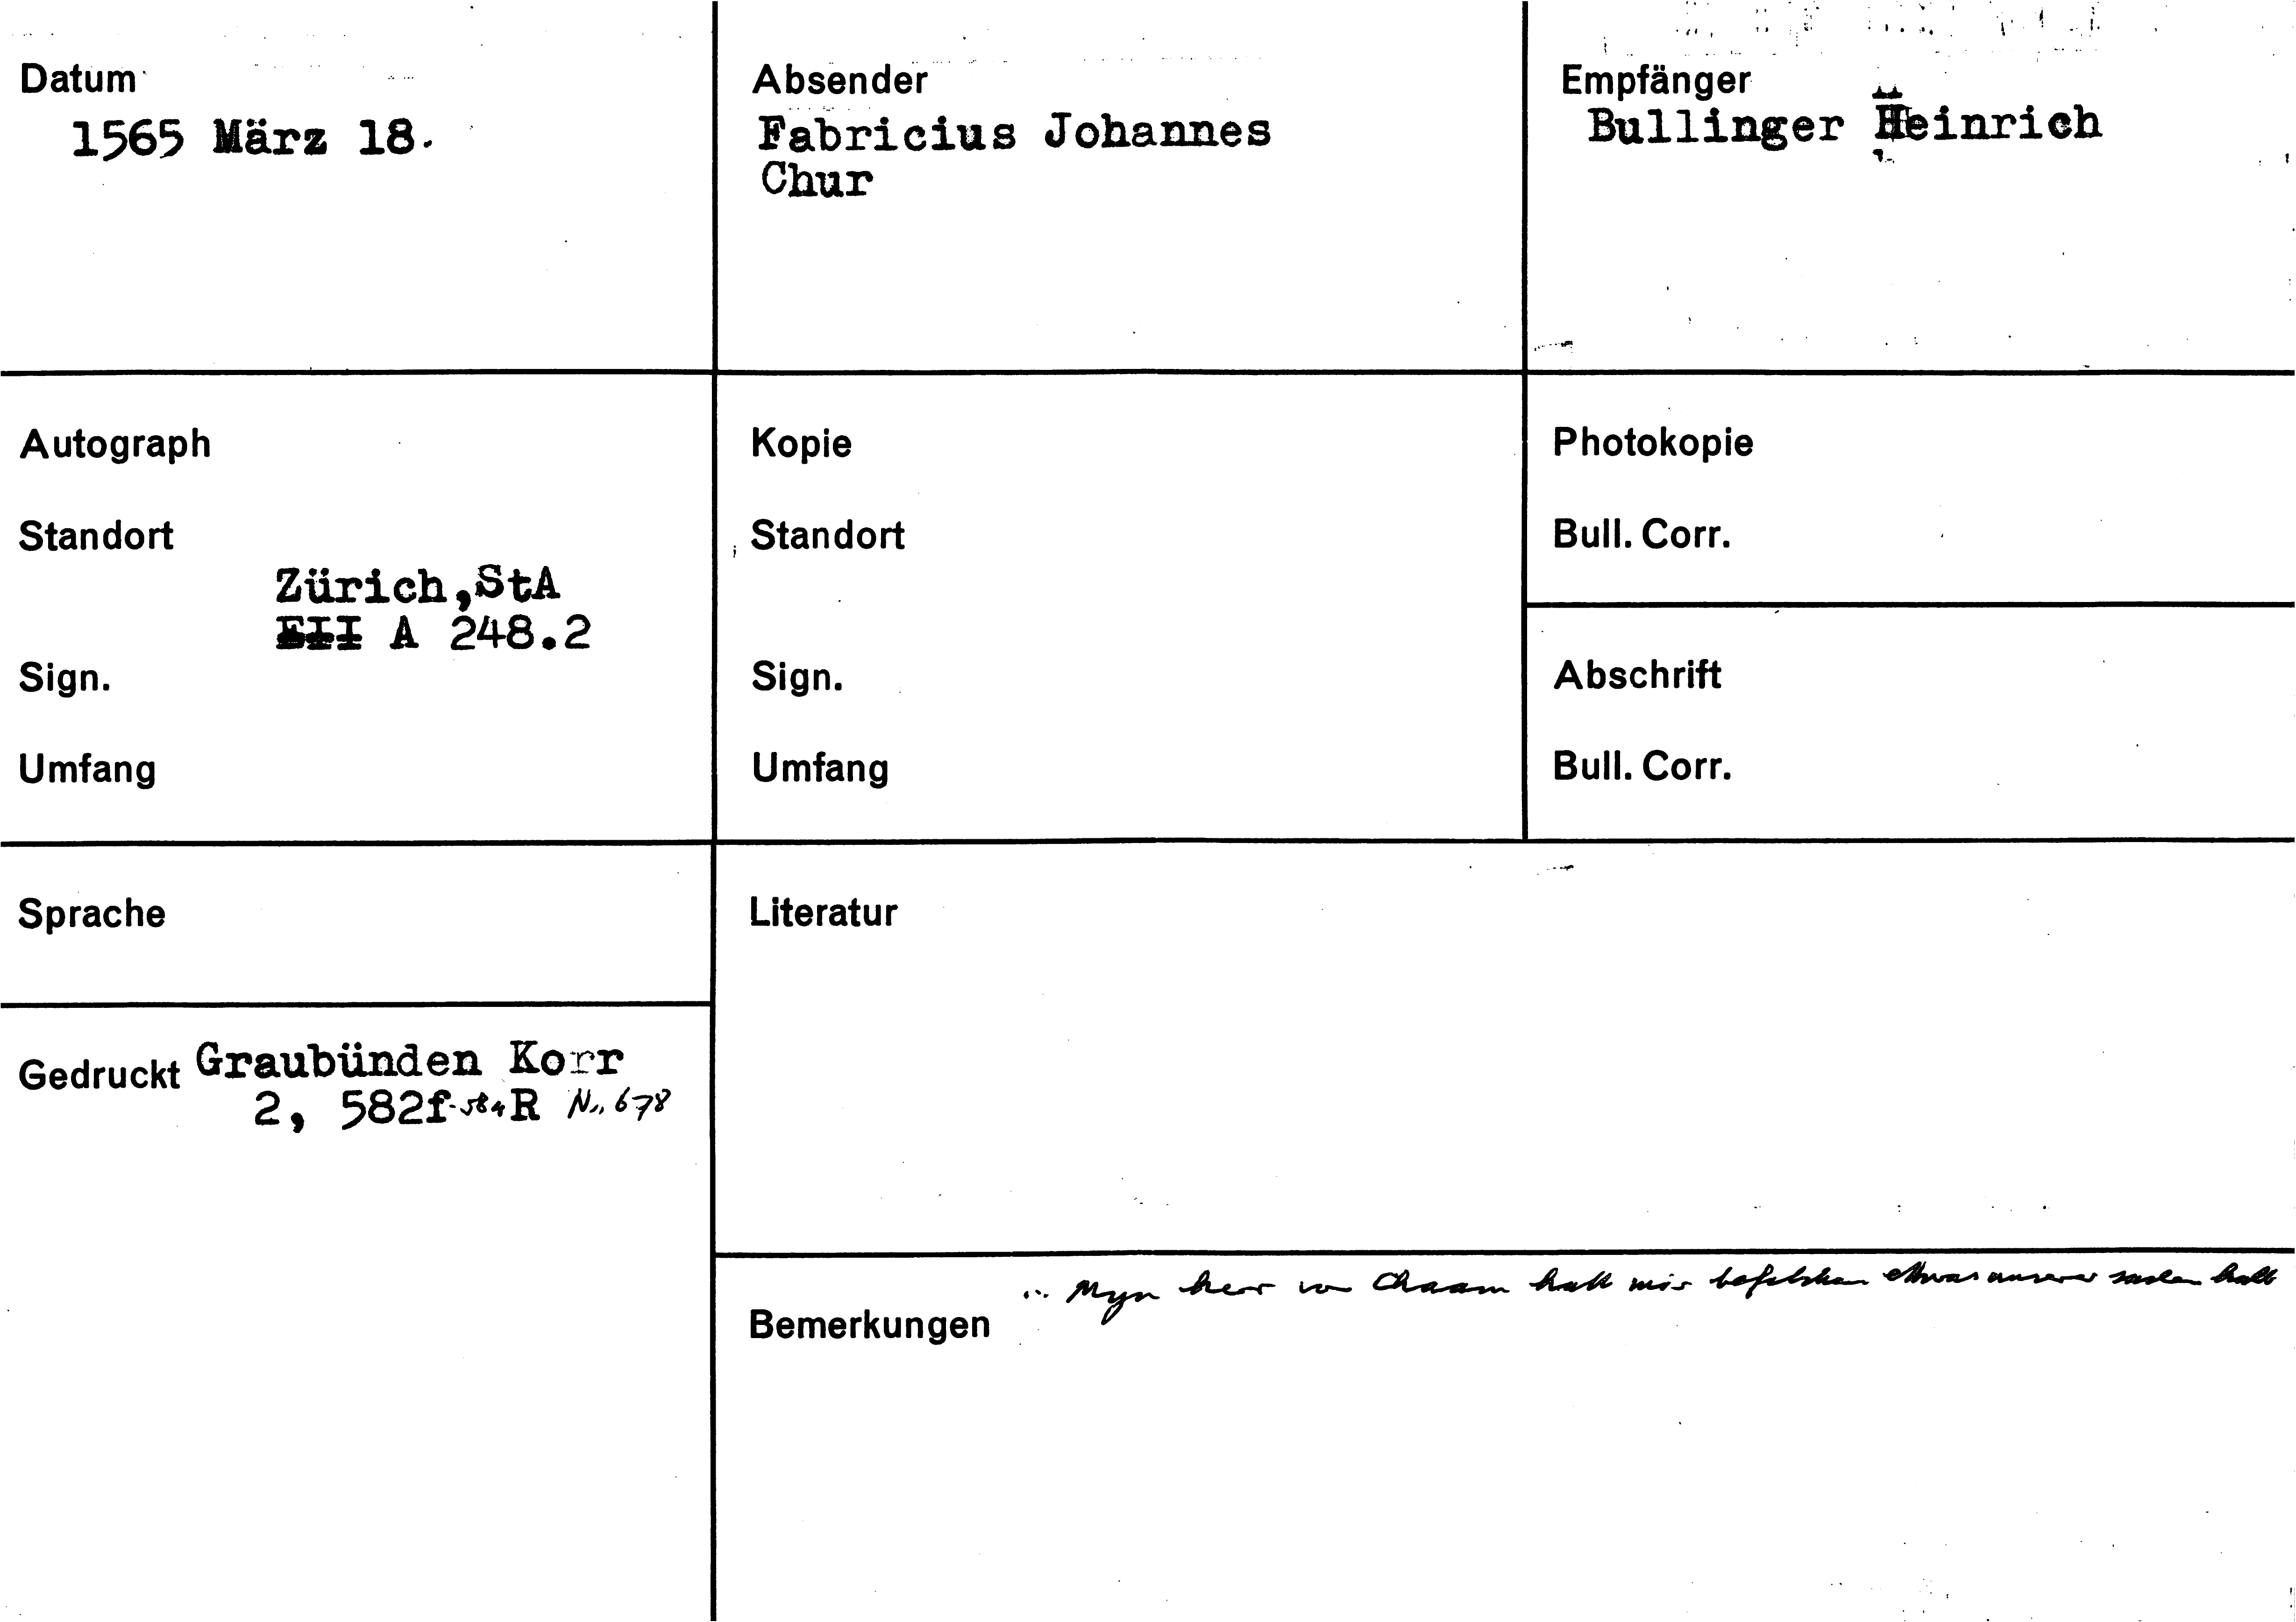 Datum
1565 März 18.
Absender
Fabricius Johannes
Chur
Empfänger
Bullinger Heinrich
Autograph
Standort
Zürich,StA
EII A 248.2
Sign.
Umfang
Kopie
Standort
Sign.
Umfang
Photokopie
Bull. Corr.
Abschrift
Bull. Corr.
Sprache
Gedruckt Graubünden Korr
2, 582f-584R No. 678
Literatur
Bemerkungen ... Myn herr von Chaam hatt mir etwas unserer